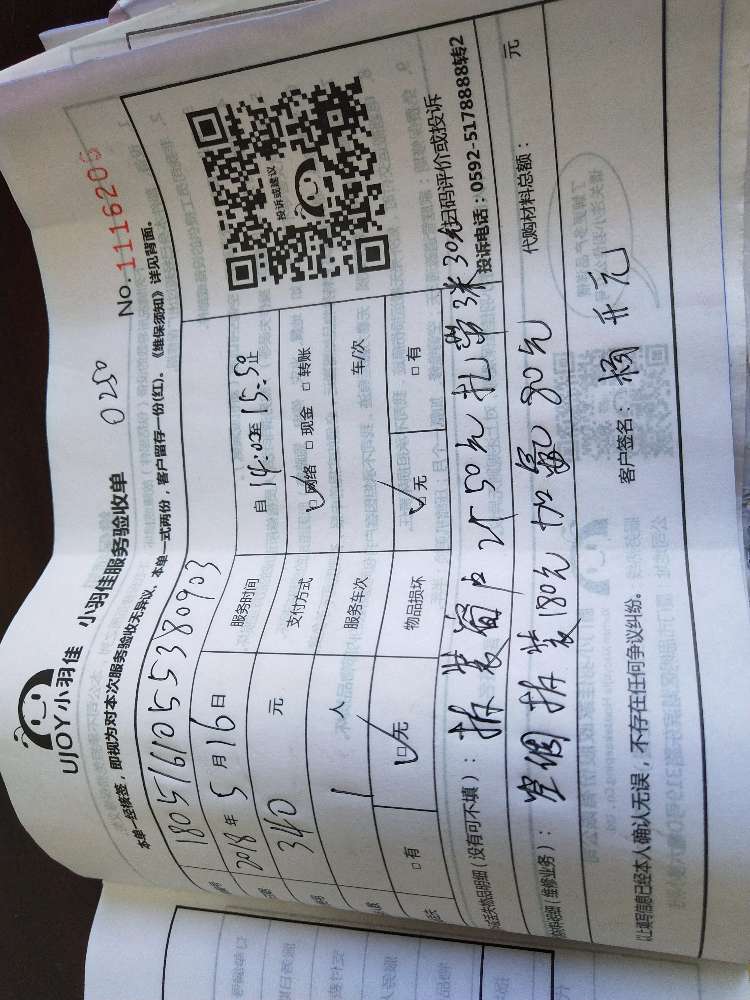 UJOY小羽佳 小羽佳服务验收单 0250
No. 1116206
本单一经核签，即视为对本次服务验收无异议、本单一式两份，客户留存一份(红)。《维保须知》详见背面。
180516105538 0903
2018年5月16日 服务时间 自14:02至15:50止
340元 支付方式 ☑网络 □现金 □转账
1人 服务车次 车/次
□有 ☑无 物品损坏 ☑无 □有
投诉或建议
扫码评价或投诉
投诉电话：0592-5178888转2
丢失物品明细（没有可不填）：拆装窗户 50元 扎带3米30元
明细（维修业务）：空调拆装180元 加氟80元 代购材料总额： 元
以上填写信息已经本人确认无误，不存在任何争议纠纷。 客户签名：